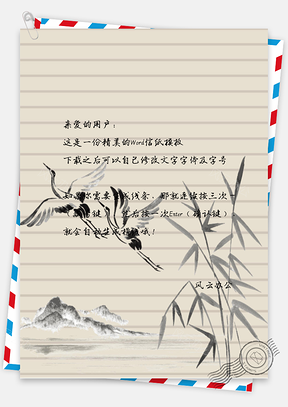 亲爱的用户：
这是一份精美的Word信纸模板
下载之后可以自己修改文字字体及字号
如果你需要生成线条，那就连续按三次一
后按一次Enter（确认键），
就会自动生成横线哦！
风云办公